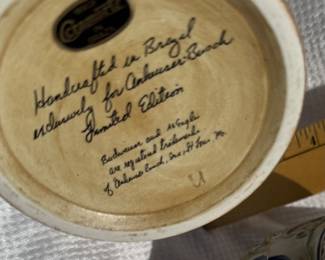 Handcrafted in Brazil
exclusively for Anheuser-Busch
Limited Edition
Budweiser and A & Eagle
are registered trademarks
of Anheuser-Busch, Inc., St. Lou., Mo.
4